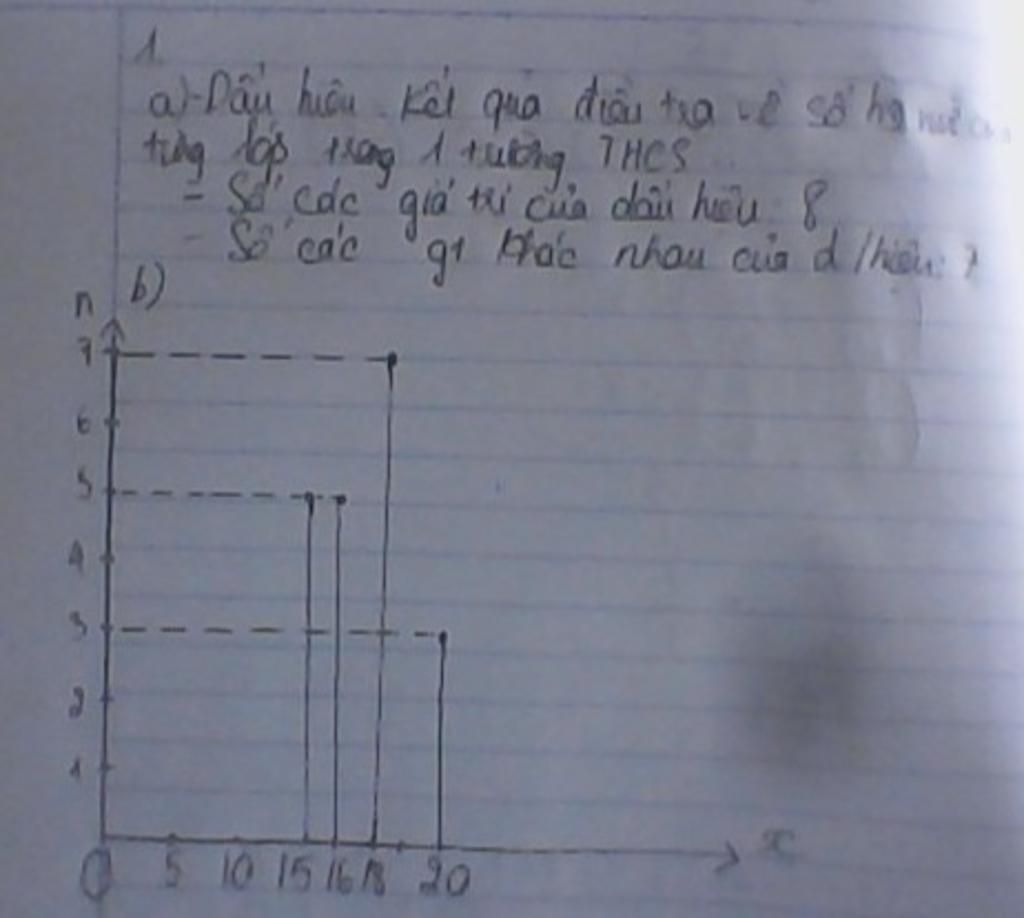 1.
a)-Dấu hiệu. Kết quả điều tra về số hs nữ
từng lớp trong 1 trường THCS
- Số các giá trị của dấu hiệu: 8
- Số các gt khác nhau của d/hiệu:
b)
n
7
6
5
4
3
2
1
0 5 10 15 16 18 20
x